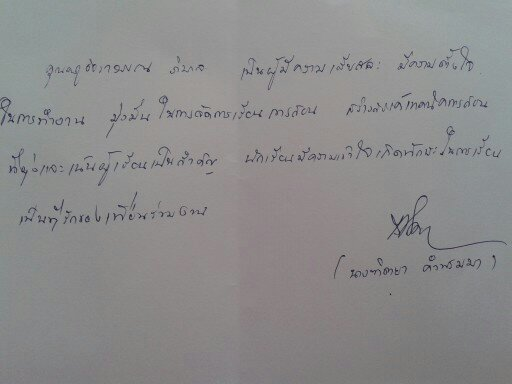 เป็นผู้มีความเสียสละ มีความตั้งใจ
ในการทำงาน มุ่งมั่น ในการจัดการเรียนการสอน สร้างสรรค์เทคนิคการสอน
และเน้นผู้เรียนเป็นสำคัญ นักเรียนมีความเข้าใจ เกิดทักษะในการเรียน
เป็นที่รักของเพื่อนร่วมงาน